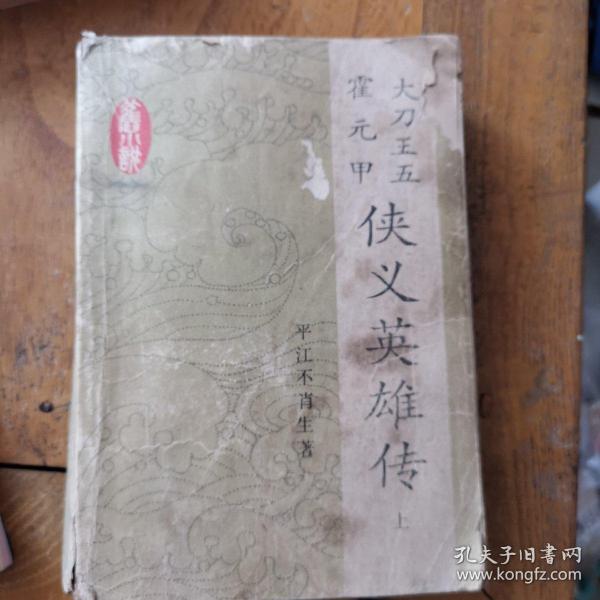 大刀王五
霍元甲
侠义英雄传
上
平江不肖生著
旧小说
孔夫子旧书网
www.kongfz.com